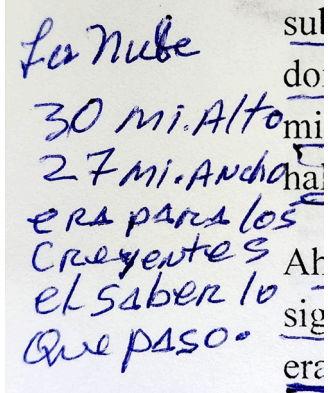 La Nube
30 mi. Alto
27 mi. Ancho
era para los
Creyentes
el saber lo
que paso.
Ah
sig
era